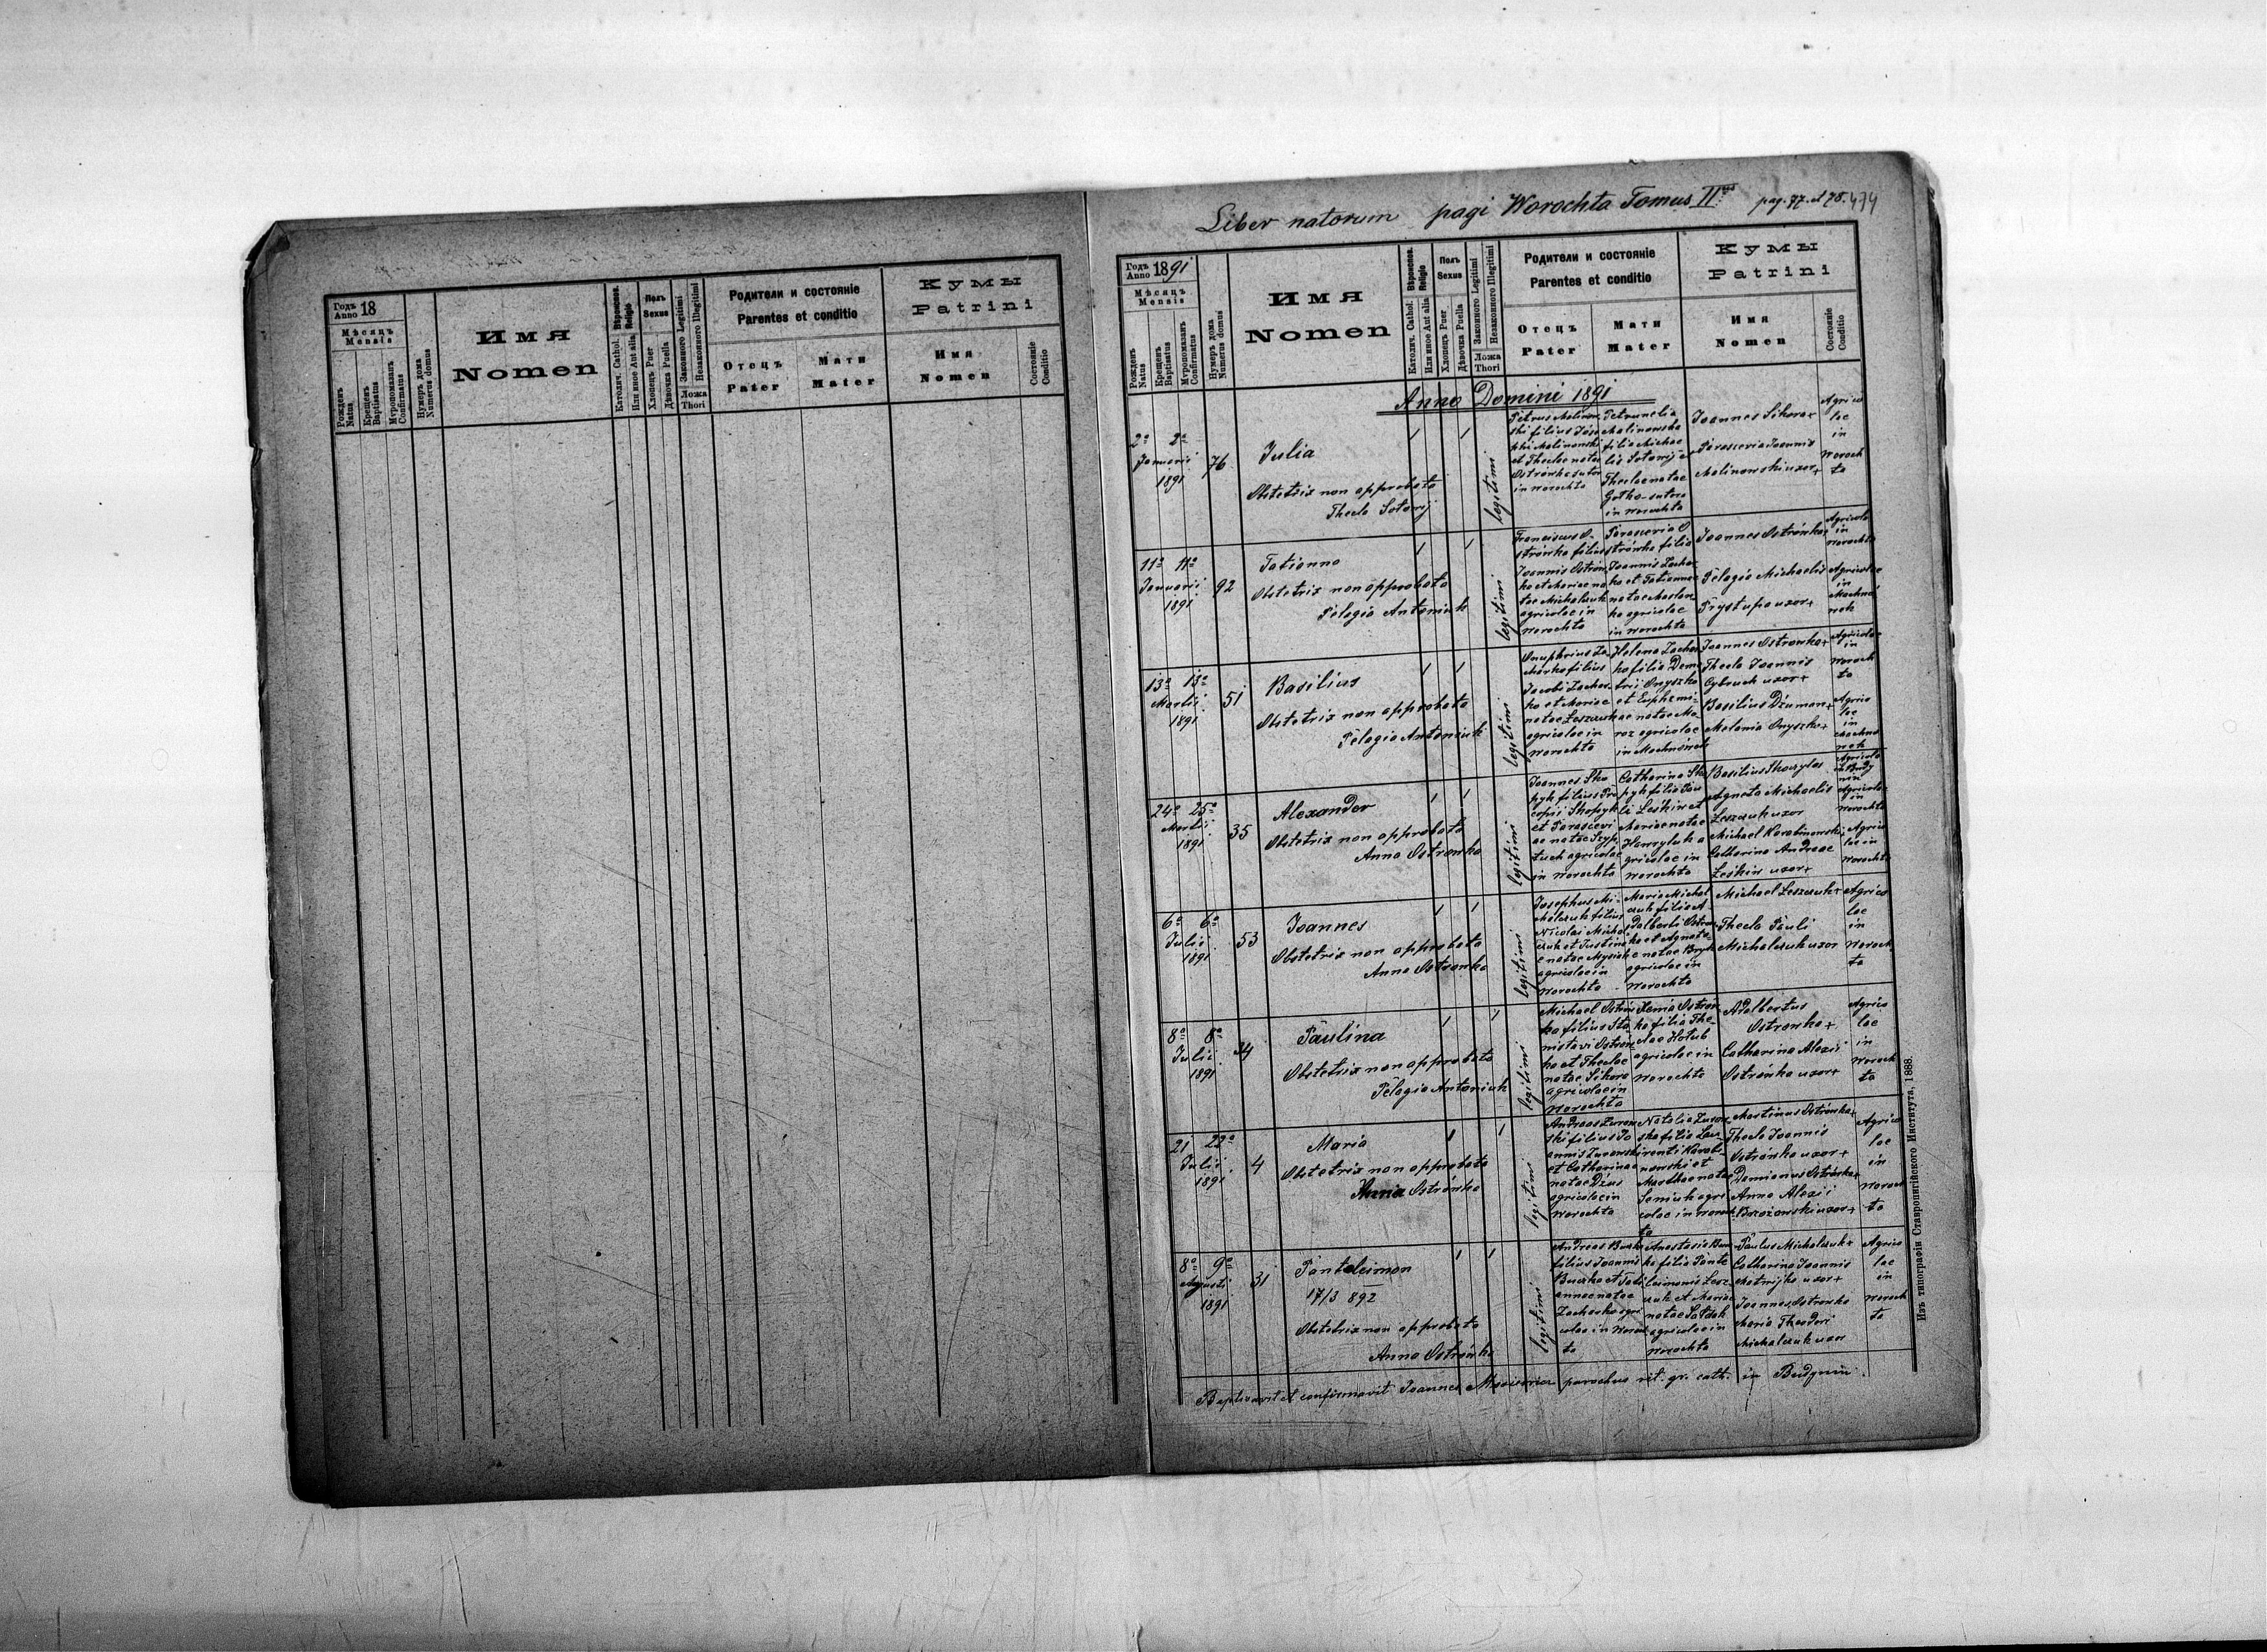 Годъ Anno 18
Мѣсяцъ
Mensis
Рожденъ Natus
Крещенъ Baptisatus
Мѵропомазанъ Confirmatus
Нумеръ дома Numerus domus
Имя
Nomen
Вѣроисповѣд. Religio
Католич. Cathol.
Или иное Aut alia
Полъ
Sexus
Хлопецъ Puer
Дѣвочка Puella
Законного Legitimi
Незаконного Illegitimi
Ложа
Thori
Родители и состояніе
Parentes et conditio
Отецъ
Pater
Мати
Mater
Кумы
Patrini
Имя
Nomen
Состояніе
Conditio
Liber natorum pagi Worochta Tomus II pag. 77. et 78. 474
Годъ Anno 1891
Мѣсяцъ
Mensis
Рожденъ Natus
Крещенъ Baptisatus
Мѵропомазанъ Confirmatus
Нумеръ дома Numerus domus
Имя
Nomen
Religio
Католич. Cathol.
Или иное Aut alia
Полъ
Sexus
Хлопецъ Puer
Дѣвочка Puella
Законного Legitimi
Незаконного Illegitimi
Ложа
Thori
Родители и состояніе
Parentes et conditio
Отецъ
Pater
Мати
Mater
Кумы
Patrini
Имя
Nomen
Состояніе
Conditio
Anno Domini 1891
2a 2a
Januarii
1891
76
Julia
Obstetrix non approbata
Thecla Sotowij
legitimi
Petrus Malinow
ski filius Jose
phi Malinowski
et Theclae natae
Ostrówka sutor
in Worochta
Petrunelia
Malinowska
filia Michae
lis Sotowij et
Theclae natae
in Worochta
Joannes Sikora+
Parascevia Joannis
Malinowski uxor+
Agrico
lae
in
Woroch
ta
11a 11a
Januarii
1891
92
Tatianna
Obstetrix non approbata
Pelagia Antoniuk
legitimi
Franciscus O
strówka filius
Joannis Ostrów
ka et Mariae na
tae Michalczuk
agricolae in
Worochta
Parascevia O
strówka filia
Joannis Zachar
ko et Tatiannae
natae
agricolae
in Worochta
Joannes Ostrówka+
Pelagia Michaelis
Prystupa uxor+
Agricola
in
Worochta
Agricolae
in
Machnó
wek
13a 13a
Martii
1891
51
Basilius
Obstetrix non approbata
Pelagia Antoniuk
legitimi
Onuphrius Za
charko filius
Jacobi Zachar
ko et Mariae
natae Leszczuk
agricolae in
Worochta
Helena Zachar
ko filia Deme
trii Onyszko
et Euphemi
ae natae Mo
roz agricolae
in Machnówek
Joannes Ostrowka+
Thecla Joannis
Cybruch uxor+
Basilius Dzuman+
Melania Onyszko+
Agricolae
in
Woroch
ta
Agrico
lae
in
Machnó
wek
24a 25a
Martii
1891
35
Alexander
Obstetrix non approbata
Anna Ostrowka
legitimi
Joannes Sko
pyk filius Pro
copii Skopyk
et Parascevi
ae natae Szyp
tuch agricolae
in Worochta
Catharina Sko
pyk filia Pau
li Leśkiw et
Mariae natae
Hawryluk a
gricolae in
Worochta
Basilius Skoczylas
Agneta Michaelis
Leszczuk uxor
Michael Karabinowski+
Catharina Andreae
Leśkiw uxor+
Agricola
in Budy
nin
Agricola
in
Worochta
Agrico
lae in
Worochta
6a 6a
Julii
1891
53
Joannes
Obstetrix non approbata
Anna Ostrowka
legitimi
Josephus Mi
chalczuk filius
Nicolai Michal
czuk et Justina
e natae Mysiak
agricolae in
Worochta
Maria Michal
czuk filia A
dalberti Ostrow
ka et Agneta
e natae Bryk
agricolae in
Worochta
Michael Leszczuk+
Thecla Pauli
Michalczuk uxor
Agrico
lae
in
Woroch
ta
8a 8a
Julii
1891
34
Paulina
Obstetrix non approbata
Pelagia Antoniuk
legitimi
Michael Ostrów
ka filius Sta
nislavi Ostrów
ka et Theclae
natae Sikora
agricolae in
Worochta
Xenia Ostrow
ka filia The
clae Hołub
agricolae in
Worochta
Adalbertus
Ostrowka+
Catharina Alexii
Ostrówka uxor+
Agrico
lae
in
Woroch
ta
21 22a
Julii
1891
4
Maria
Obstetrix non approbata
Anna Ostrówka
legitimi
Andreas Zurow
ski filius Jo
annis Zurowski
et Catharinae
natae Dżus
agricolae in
Worochta
Natalia Zurow
ska filia Lau
rentii Karabi
nowski et
Marthae natae
Semiuk agri
colae in Woroch
ta
Martinus Ostrówka+
Thecla Joannis
Ostrówka uxor+
Damianus Ostrówka+
Anna Alexii
Brozowski uxor+
Agrico
lae
in
Woroch
ta
8a 9a
Augusti
1891
31
Pantaleimon
17/3 892
Obstetrix non approbata
Anna Ostrówka
legitimi
Andreas Buczko
filius Joannis
Buczko et Tati
annae natae
Zacharko agri
colae in Woroch
ta
Anastasia Bucz
ko filia Pante
leimonis Lesz
czuk et Mariae
natae Sałdak
agricolae in
Worochta
Paulus Michalczuk+
Catharina Joannis
Matwijko uxor+
Joannes Ostrowka
Maria Theodori
Michalczuk uxor
Agrico
lae
in
Woroch
ta
Baptisavit et confirmavit Joannes parochus rit. gr. cath. in Budynin.
Изъ типографіи Ставропигійского Института, 1888.